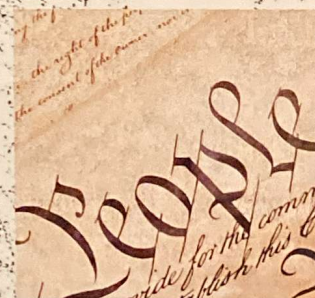 the right of the
the consent of the Owner nor in
People
vide for the comm
blish this C